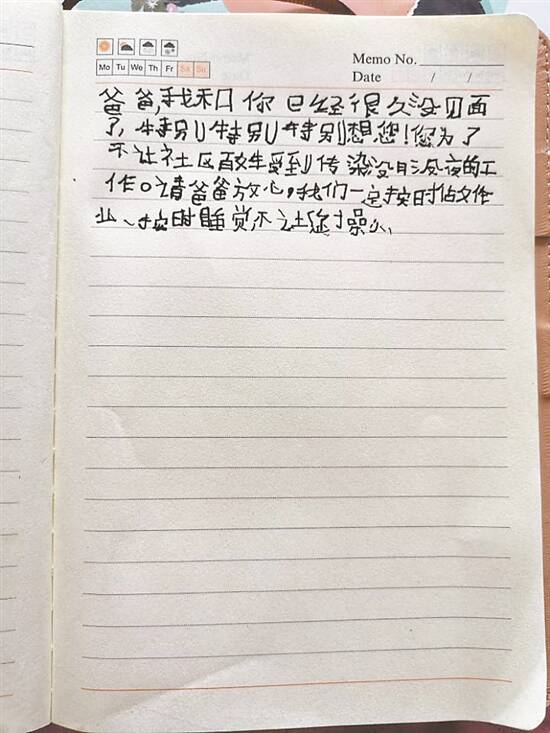 Memo No.
Mo Tu We Th Fr Sa Su
Date / /
爸爸,我和你已经很久没见面
了,特别特别特别想您!您为了
不让社区百姓受到传染没日没夜的工
作。请爸爸放心,我们一定按时做作
业、按时睡觉不让您操心、